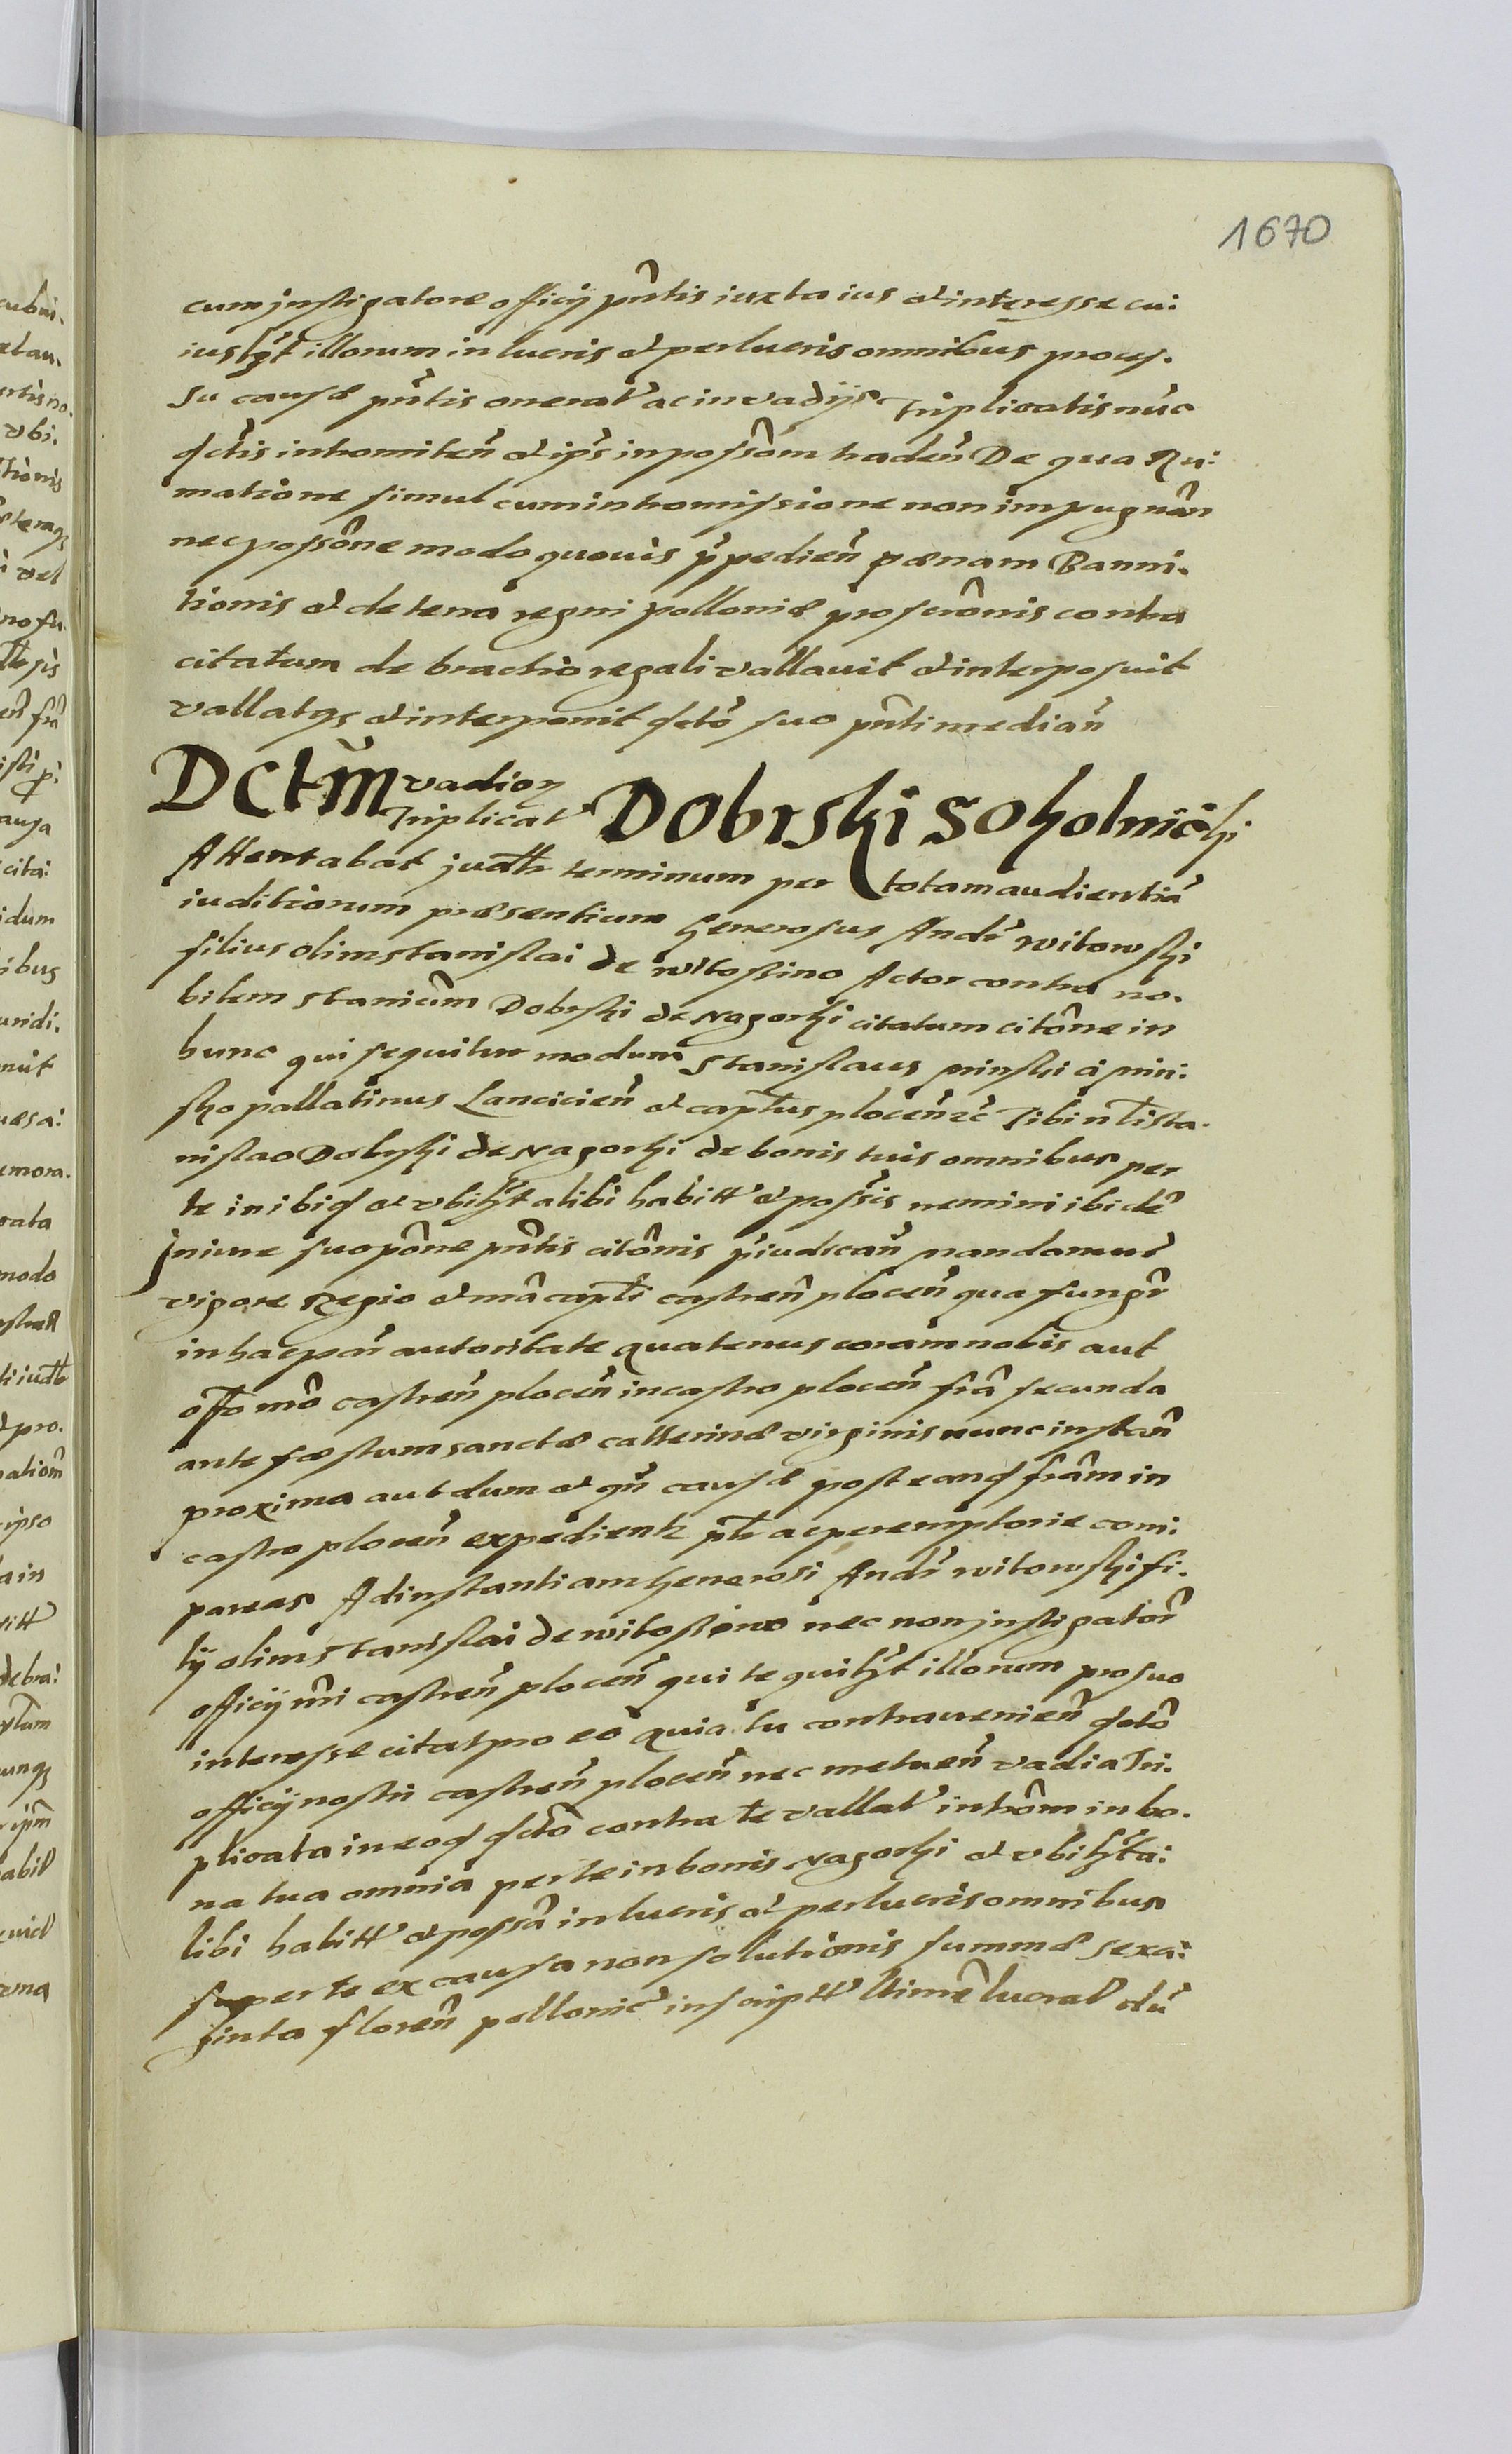 1670
cum jnstigatore officij pñtis iuxta ius et interesse cui:
ius lʒt illorum in lucris et perlucris omnibus proces.
su causæ pñtis onerat ac in vadijs Triplicatis nũc
dctis intromitteñ et ips in possõm tradeñ De qua Rui:
matione simul cum intromissione non impugnañ
nec possõne modo quouis p̃pedieñ pænam Banni.
tionis et de terra regni pollonię proscrõnis contra
citatum de brachio regali vallauit et interposuit
vallatqȝ et interponit dcto suo pñti mediañ
Dctm̃ vadioɤ Triplicat Dobrski Sokolnicki
Attentabat judlr terminum per totam audientiã
iuditiorum præsentium Generosus Andr̃ witowski
filius olim stanislai de witoslino Actor contra no.
bilem stanicũm Dobrski de nagorki citatum citõne in
hunc qui sequitur modum Stanislaus minski à min:
sko pallatinus Lanciciẽn et captus plocẽn ꝛc Tibi n̄ti sta.
nislao Dobrski de nagorki de bonis tuis omnibus per
te inibi qʒ et vbilʒt alibi habitt et possis nemini ibidẽ
jn iure suo põne pñtis citõnis p̃iudicañ mandamus
vigore Regio et mã capti castreñ ploceñ qua fungr̃
in hac par autoritate quatenus coram nobis aut
offo nrõ castreñ ploceñ in castro ploceñ frã secunda
ante fæstum sanctæ catterinæ virginis nunc instañ
proxima aut dum et qñ causæ post eand frãm in
castro ploceñ expedientr plr ac peremptorie com:
pareas Ad instantiam Generosi Andr̃ witowski fi.
lij olim stanislai de witoslino nec non jnstigator̃
officij nr̃i castreñ ploceñ qui te quilʒt illorum pro suo
interesse citat pro eo quia tu contraueniẽn dcto
officij nostri castreñ ploceñ nec metueñ vadia Tri.
plicata in eod dcto contra te vallat intrõm in bo.
na tua omnia per te in bonis nagorki et vbilʒt a:
libi habitt et possa in lucris et perlucris omnibus
super te ex causa non solutionis summæ sexa:
ginta floreñ pollonic inscriptt ltime lucrat dũ